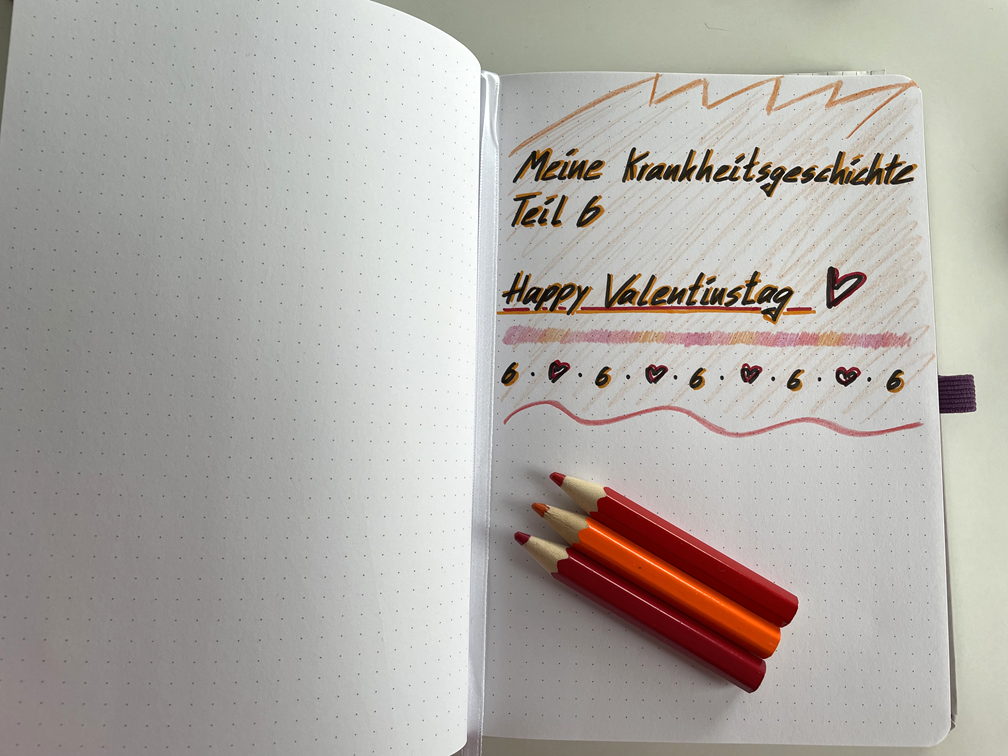 Meine Krankheitsgeschichte
Teil 6
Happy Valentinstag ♥
6 · ♥ · 6 · ♥ · 6 · ♥ · 6 · ♥ · 6